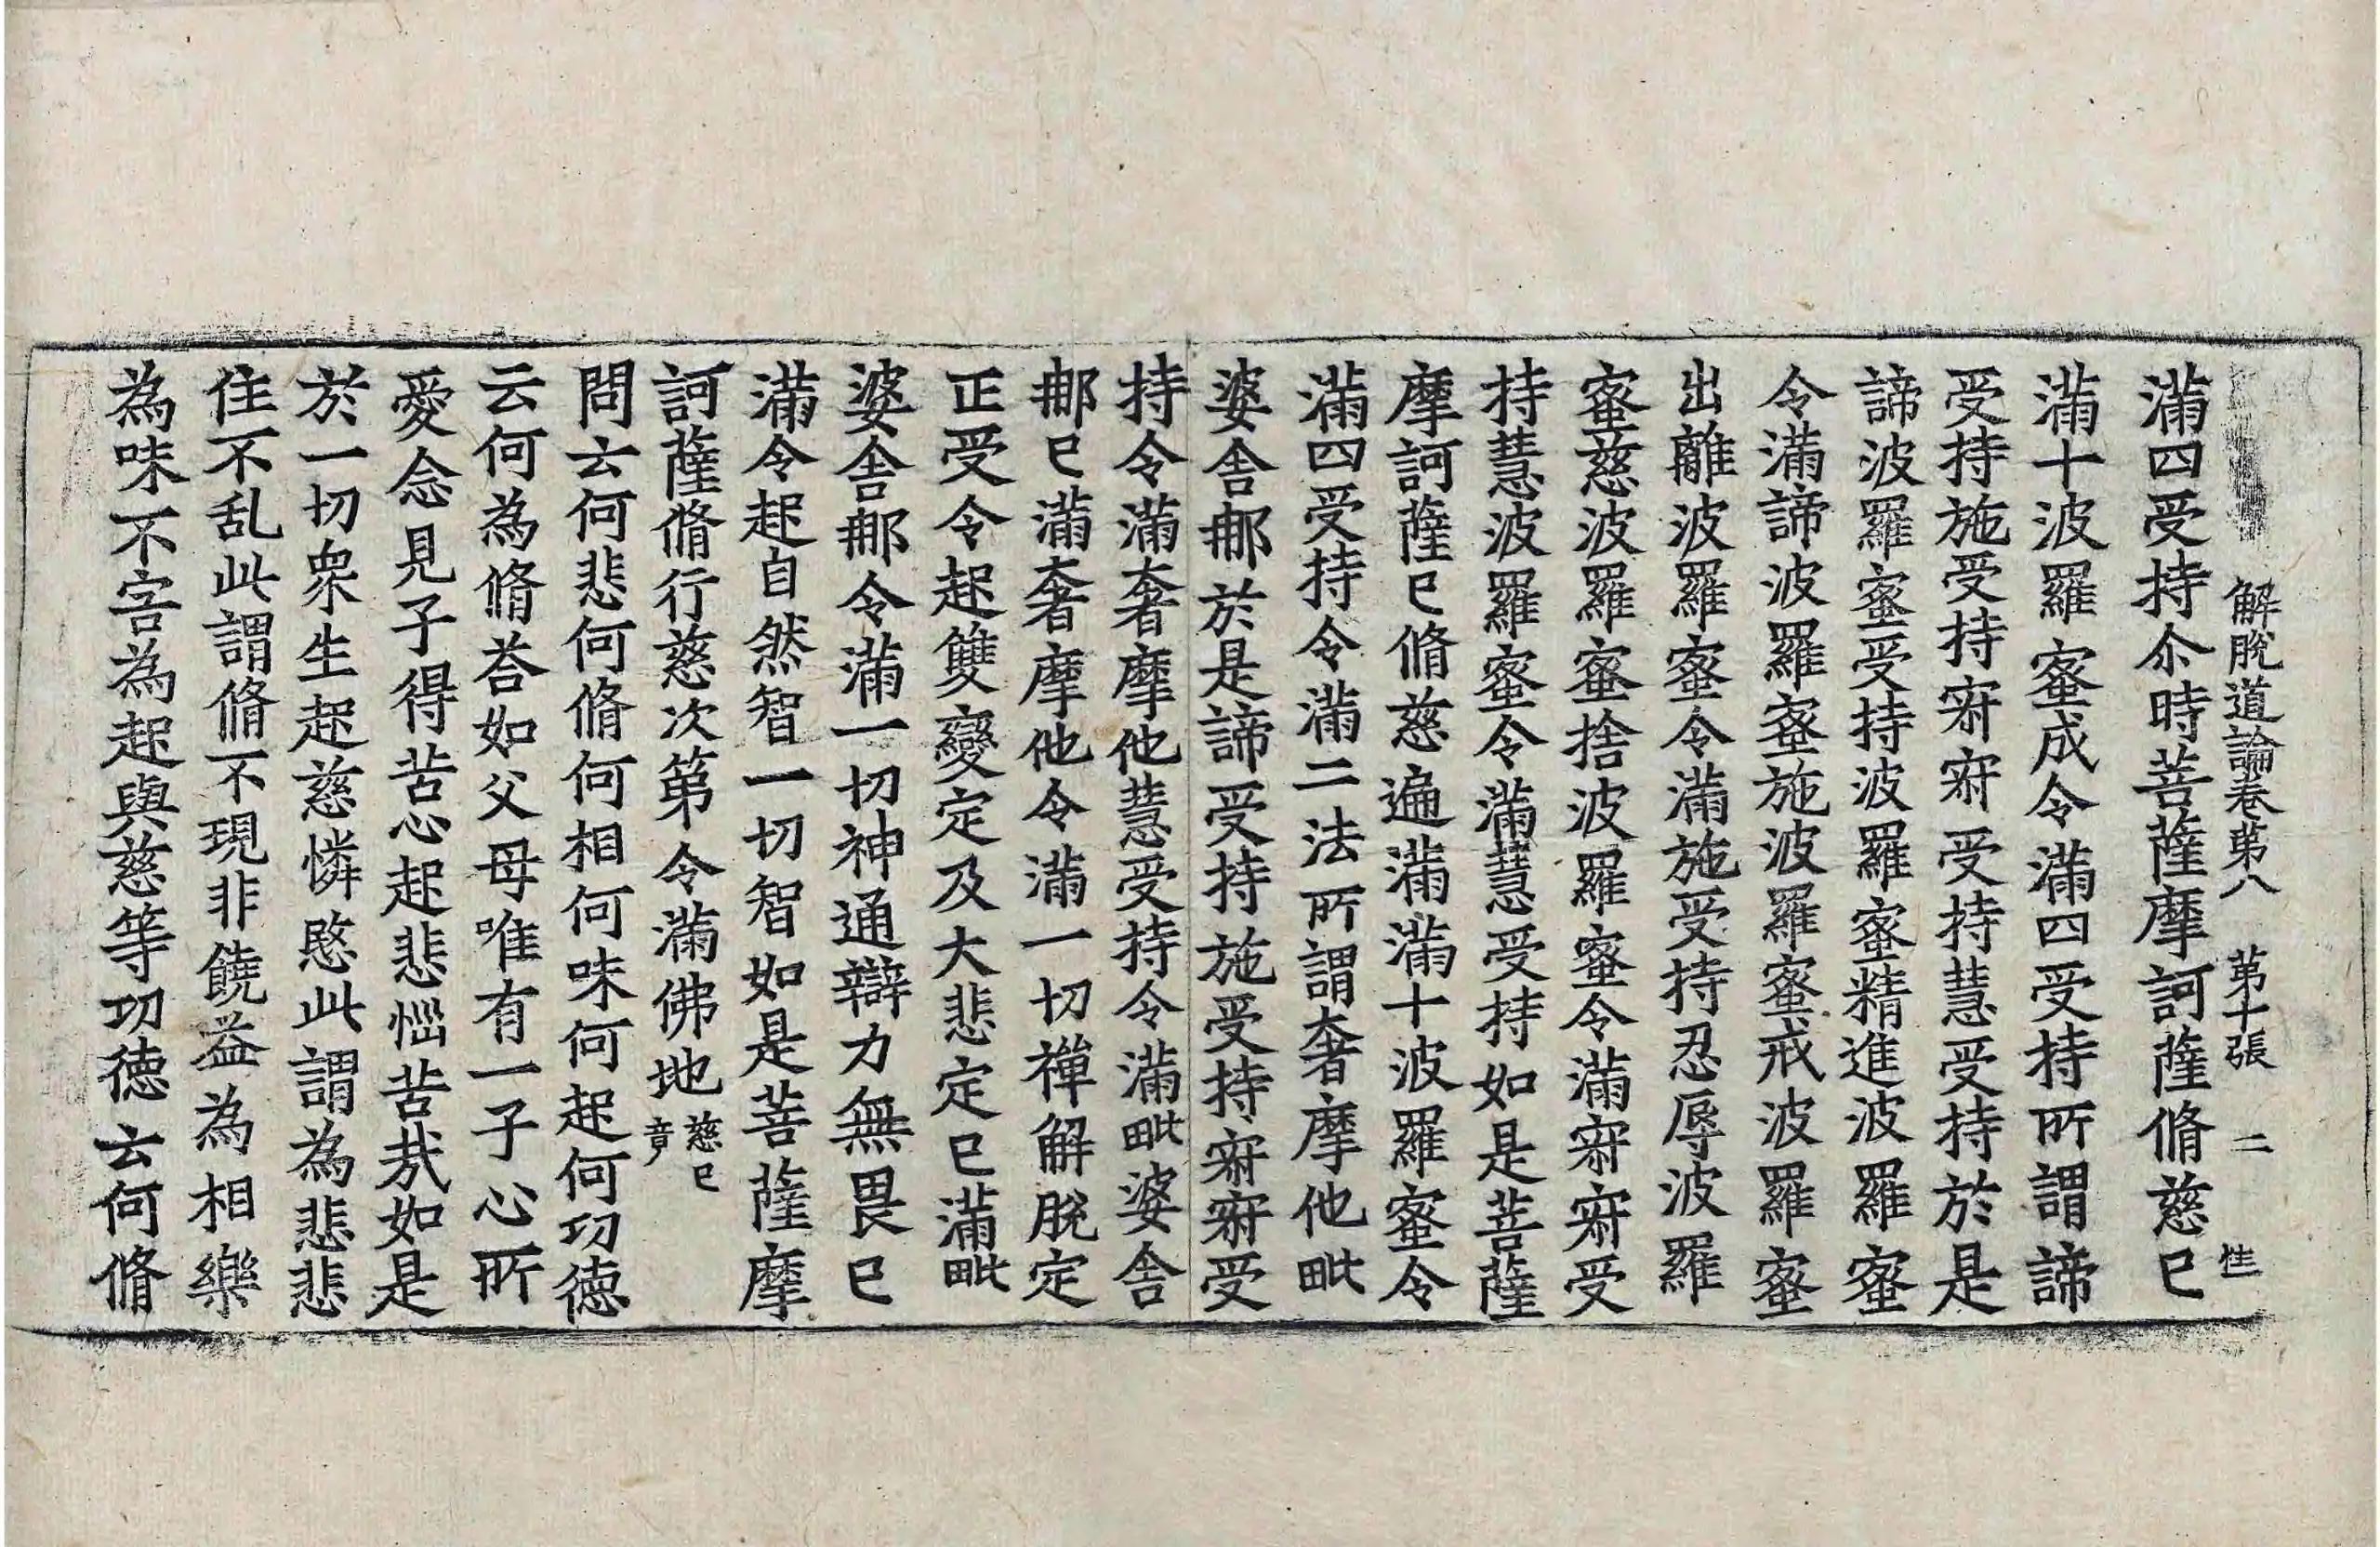 解脫道論卷第八 第十張 二 性
滿四受持尒時菩薩摩訶薩脩慈已
滿十波羅蜜成令滿四受持所謂諦
受持施受持寂寂受持慧受持於是
諦波羅蜜受持波羅蜜精進波羅蜜
令滿諦波羅蜜施波羅蜜戒波羅蜜
出離波羅蜜令滿施受持忍辱波羅
蜜慈波羅蜜捨波羅蜜令滿寂寂受
持慧波羅蜜令滿慧受持如是菩薩
摩訶薩已脩慈遍滿滿十波羅蜜令
滿四受持令滿二法所謂奢摩他毗
婆舍那於是諦受持施受持寂寂受
持令滿奢摩他慧受持令滿毗婆舍
那已滿奢摩他令滿一切禪解脫定
正受令起雙變定及大悲定已滿毗
婆舍那令滿一切神通辯力無畏已
滿令起自然智一切智如是菩薩摩
訶薩脩行慈次第令滿佛地慈已竟
問云何悲何脩何相何味何起何功德
云何為脩荅如父母唯有一子心所
愛念見子得苦心起悲惱苦哉如是
於一切衆生起慈憐愍此謂為悲悲
住不乱此謂脩不現非饒益為相樂
為味不害為起與慈等功德云何脩